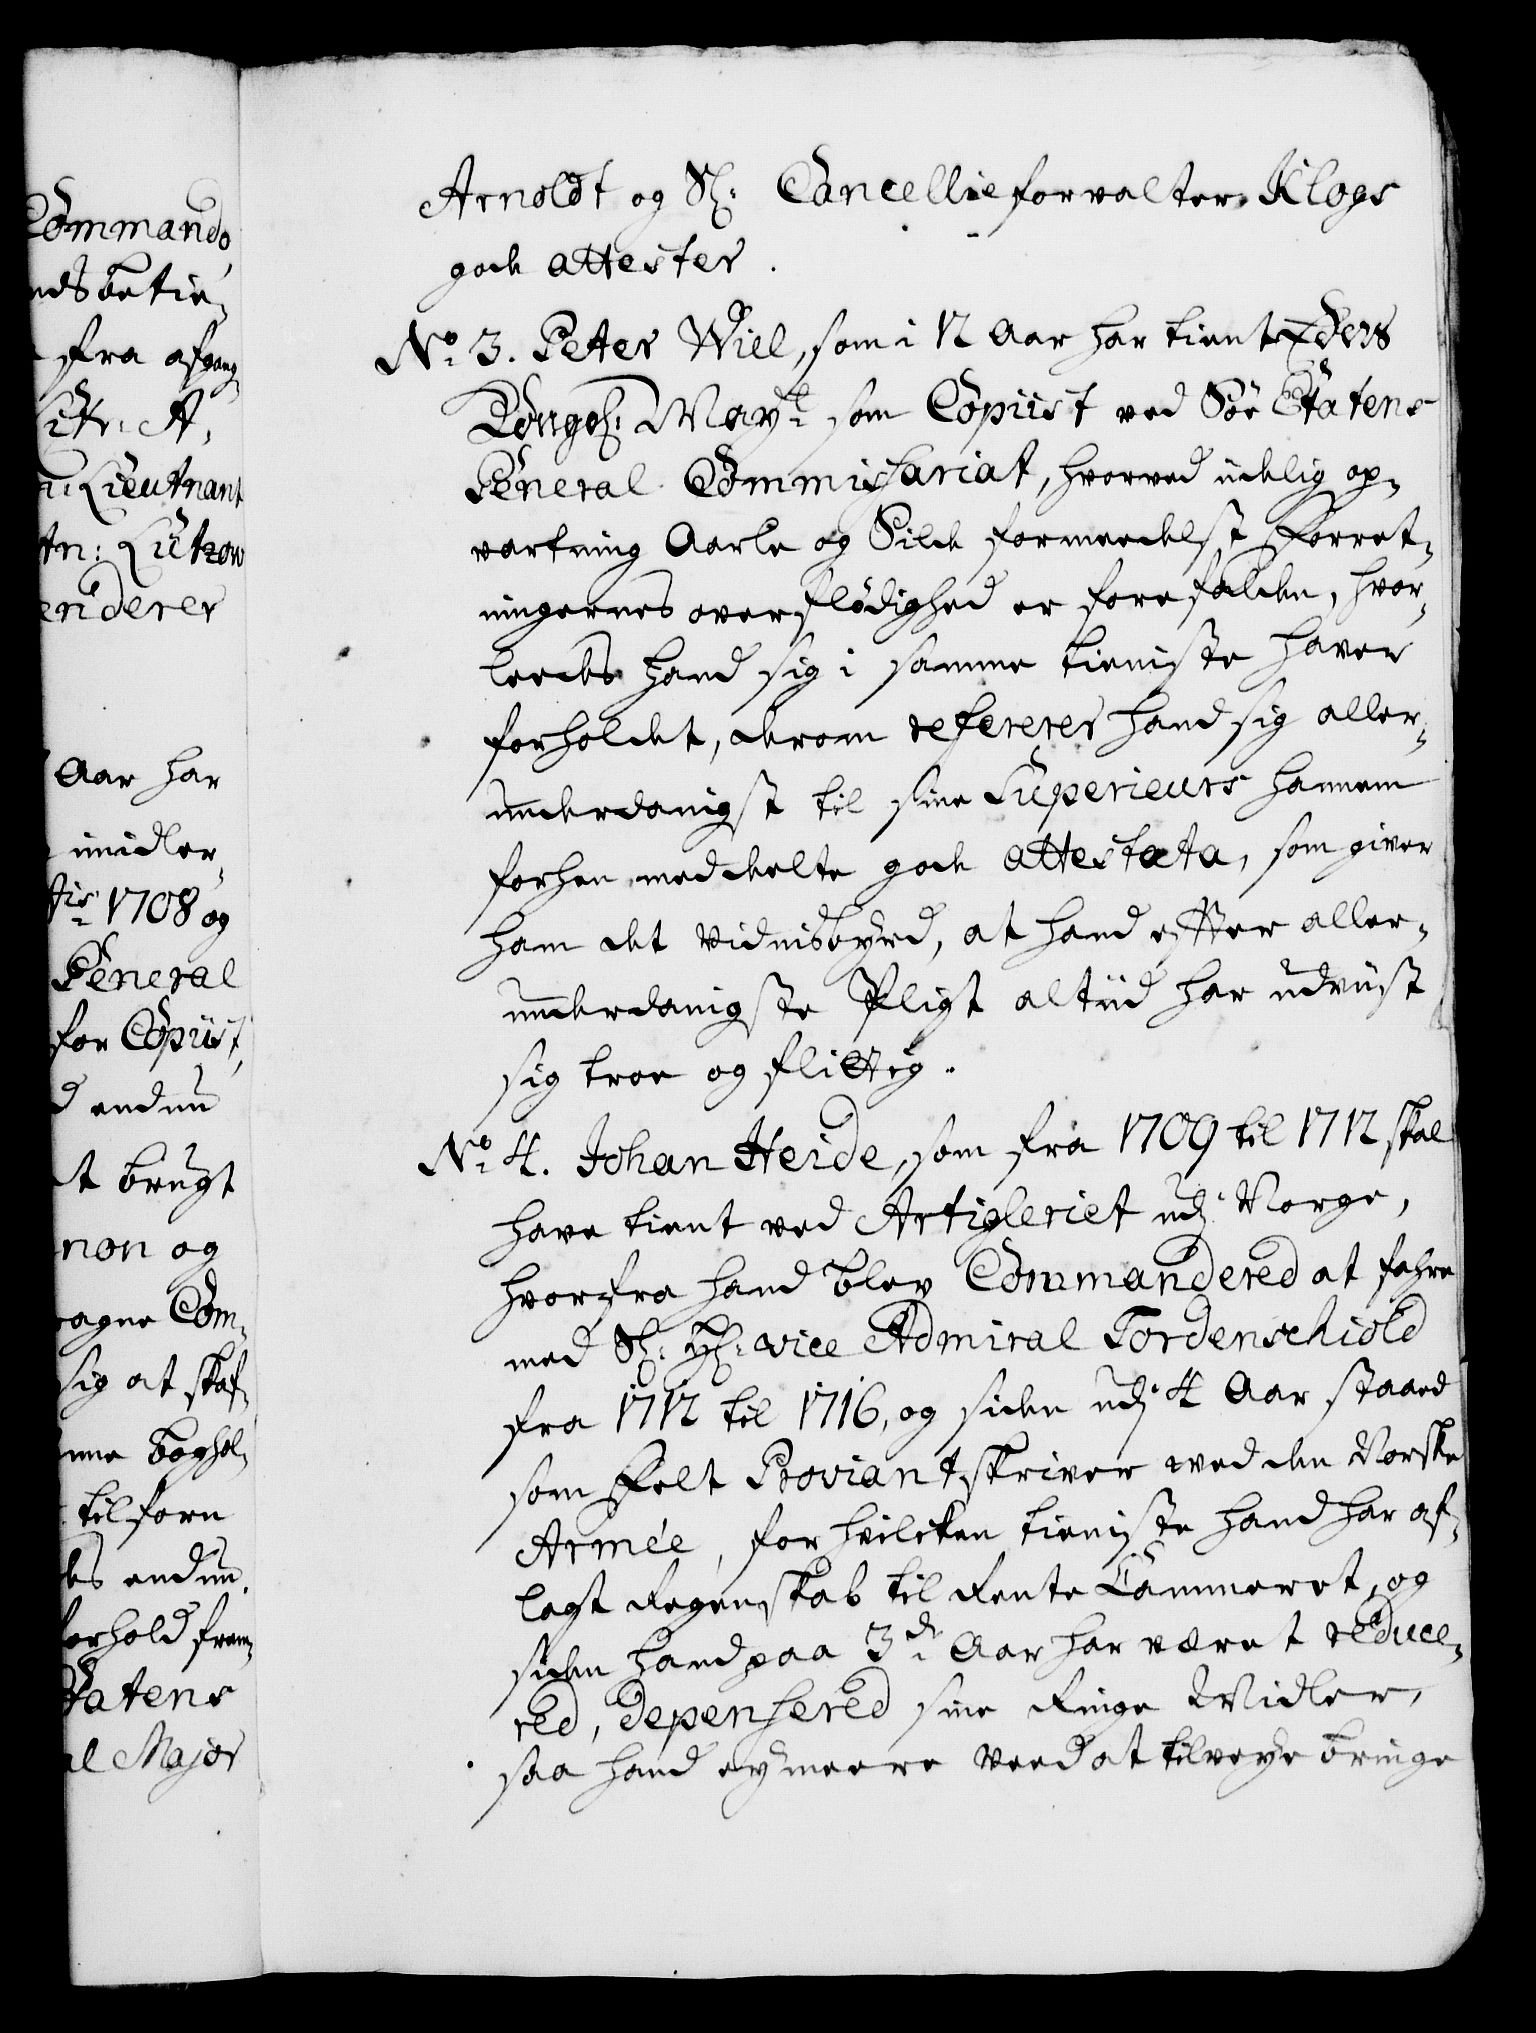 Commando
nds betie-
fra afgang-
Litr: A,
Lieutnant
tn: Lützow
enderer
Aar har
imidler-
1708 og
General
for Copiist,
d endnu
t brugt
non og
agne Com-
sig at skaf-
nne boghol-
tilforn
des endnu.
forhold frem-
tatens
al Major
Arnoldt og Sl: Cancellieforvalter Klogs
gode attester.
No 3. Peter Wiel, som i 12 Aar har tient Eders
Kongel: Mayt: som Copiist ved Söe Etatens
General Commissariat, hvorved idelig op-
vartning Aarle og Silde formedelst Forret-
ningernes overflödighed er forefalden, hvor-
leedes hand sig i samme tieniste haver
forholdet, derom refererer hand sig aller-
underdanigst til sine Superieurs hannem
forhen meddeelte gode attestata, som giver
ham det vidnisbyrd, at hand efter aller-
underdanigste Pligt altiid har udviist
sig troe og flittig.
No 4. Johan Heide, som fra 1709 til 1712 skal
have tient ved Artigleriet udj Norge,
hvorfra hand blev Commandered at fahre
med Sl: Hr: vice Admiral Tordenschiold
fra 1712 til 1716, og siden udj 4 Aar staaed
som Felt Proviantskriver ved den Norske
Armée, for hvilcken tieniste hand har af-
lagt Regenskab til Rente Cammeret, og
siden hand paa 3de Aar har været reduce-
red, depensered sine Ringe Midler,
saa hand ey meere veed at tilveye bringe